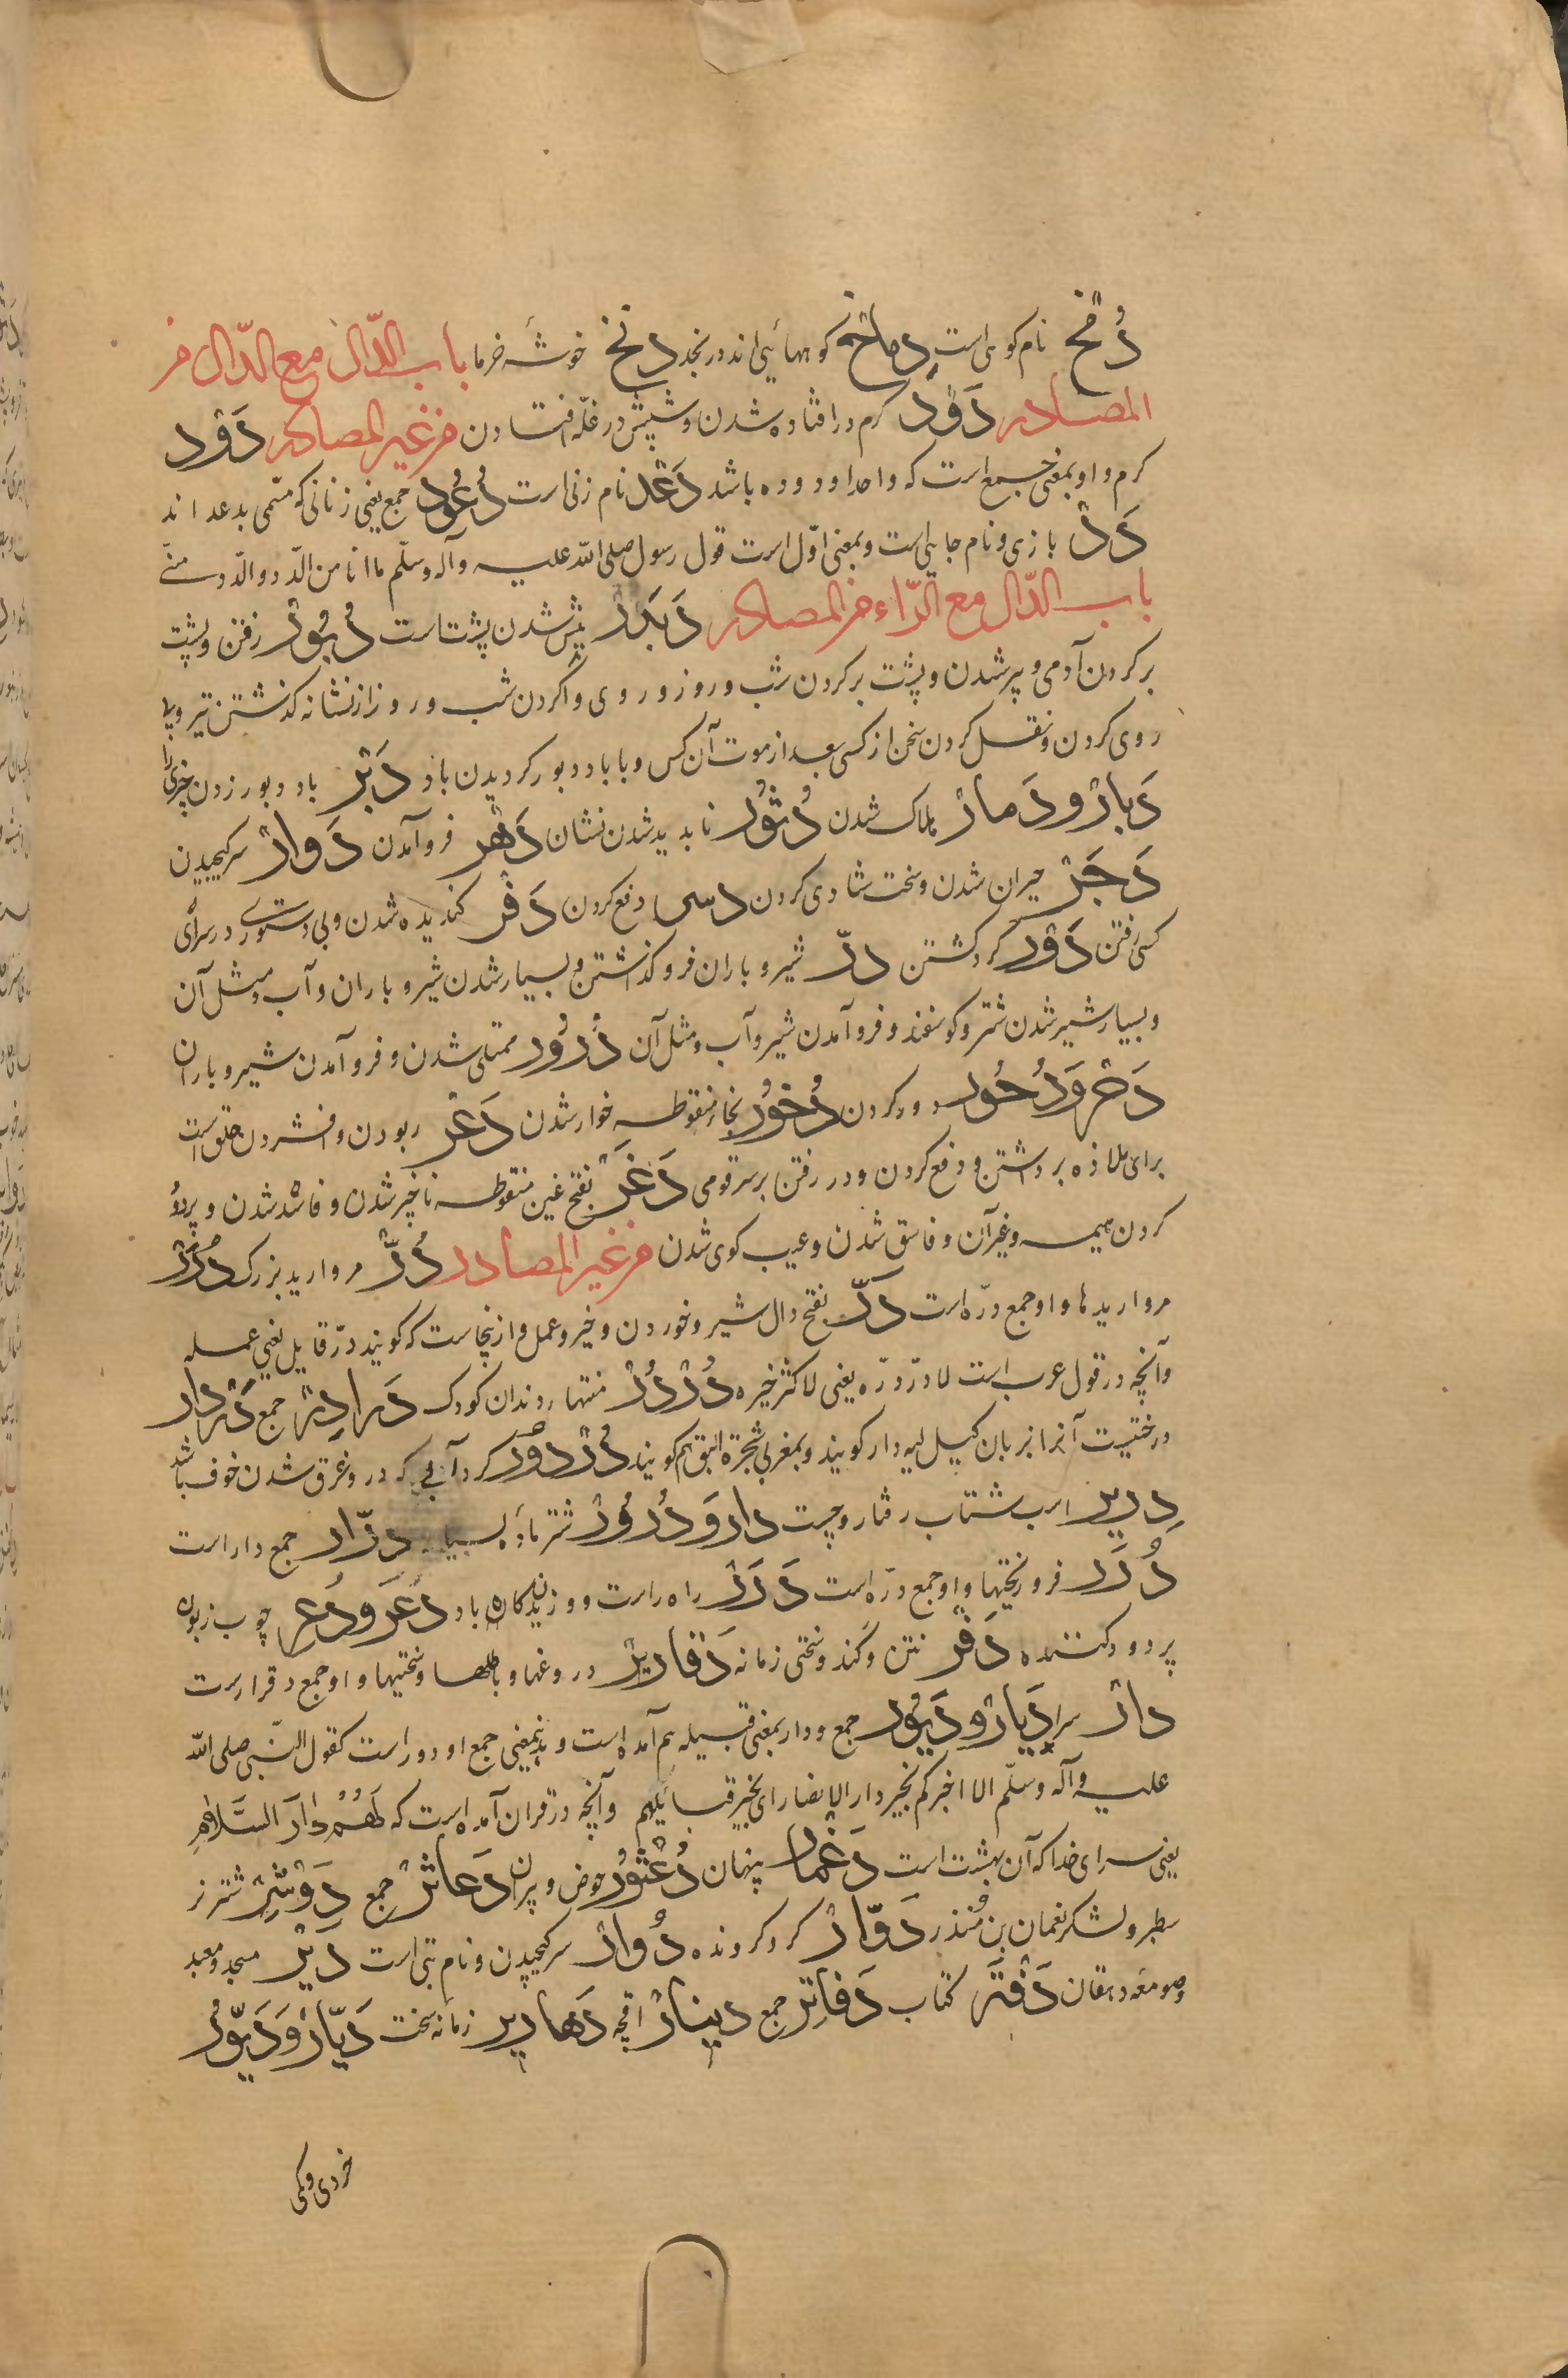 دُمَّخ نام کوهی است دماخ کوههائی اند در نجد دنخ خوشهٔ خرما باب الدّال مع الدّال من
المصادر دَوْد کرم در افتاده شدن و شپش در غلّه افتادن من غیر المصادر دَوْد
کرم و او بمعنی جمع است که واحد او دوده باشد دَعْد نام زنی است دُعُود جمع یعنی زنانی که مسّمی بدعد اند
دَدْ بازی و نام جایی است و بمعنی اوّل است قول رسول صلی الله علیه وآله وسلّم ما انا من الدّد ولا الدّد منّی
باب الدّال مع الرّاء من المصادر دَبَرْ ریش شدن پشت است دُبُورْ رفتن و پشت
بر کردن آدمی و پیر شدن و پشت بر کردن شب و روز و روی وا کردن شب و روز از نشانه کذشتن تیر و
روی کردن و نقل کردن سخن از کسی بعد از موت آن کس و با باد دبور کردیدن باد دَبْر باد دبور زدن چیزی را
دَبارْ و دَمارْ هلاک شدن دُثُورْ ناپدید شدن نشان دَهْر فرو آمدن دَوارْ سرکیجیدن
دَجَرْ حیران شدن و سخت شادی کردن دسر دفع کردن دَفْر کندیده شدن و بی دستوری در سرای
کسی رفتن دَوْر کرد کشتن درّ شیر و باران فرو کذاشتن و بسیار شدن شیر و باران و آب و مثل آن
و بسیار شیر شدن شتر و کوسفند و فرو آمدن شیر و آب و مثل آن دُرُور ممتلی شدن و فرو آمدن شیر و باران
دَحْر وَ دُحُور دور کردن دُخُورْ بخاء منقوطه خوار شدن دَغْر ربودن و افشردن حلق است
برای ملاذه برداشتن و دفع کردن و در رفتن بر سر قومی دَغَرْ بفتح غین منقوطه ناچیز شدن و فاسد شدن و پر دود
کردن هیمه و غیر آن و فاسق شدن و عیب کوی شدن من غیر المصادر دُرّ مروارید بزرک دُرَرْ
مرواریدها و او جمع درّه است دَرّ بفتح دال شیر و خوردن و خیر و عمل و از ینجاست که کویند درّ قایل یعنی عمله
و آنچه در قول عرب است لا درّ درّه یعنی لا کثر خیره دُرْدُرْ منتهاء دندان کودک دَرادِرْ جمع دَرْدار
درختیست آنرا بزبان کیل لیه دار کویند و بمغربی شجرة البق هم کویند دُرْدُوْر کرد آبی که در و غرق شدن خوف باشد
دریر اسب شتاب رفتار و چست دار وَ دُرُورْ شتر مادهٔ بسیار درّار جمع دار است
دُرَر فرو ریختیها و او جمع درّه است دَرَرْ راه راست و وزیدن کاه باد دَعَر وَ دُعَر چوب زبون
پر دود کننده دَفْر نتن و کند و سختی زمانه دَقارِیرْ دروغها و باطلها و سختیها و او جمع دقراره است
دارْ سرا دِیارْ و دُیُور جمع و دار بمعنی قبیله هم آمده است و بدینمعنی جمع او دور است کقول النّبی صلی الله
علیه وآله وسلّم الا اخبرکم بخیر دار الانصار ای بخیر قبائلهم و آنچه در قران آمده است که لَهُمْ دارُ السَّلامِ
یعنی سرای خدا که آن بهشت است دَغْمار پنهان دُعْثُورْ حوض ویران دَعاثِرْ جمع دَوْسَرْ شتر نر
سطبر و لشکر نعمان بن مُنذر دَوّارْ کرد کردنده دُوارْ سرکیجیدن و نام بتی است دَیْر مسجد و معبد
وصومعه دهقان دَفْتَر کتاب دَفاتِرْ جمع دینارْ اقچه دَهارِیر زمانهٔ سخت دَیّارْ وَ دَیُّورْ
خردی وکی